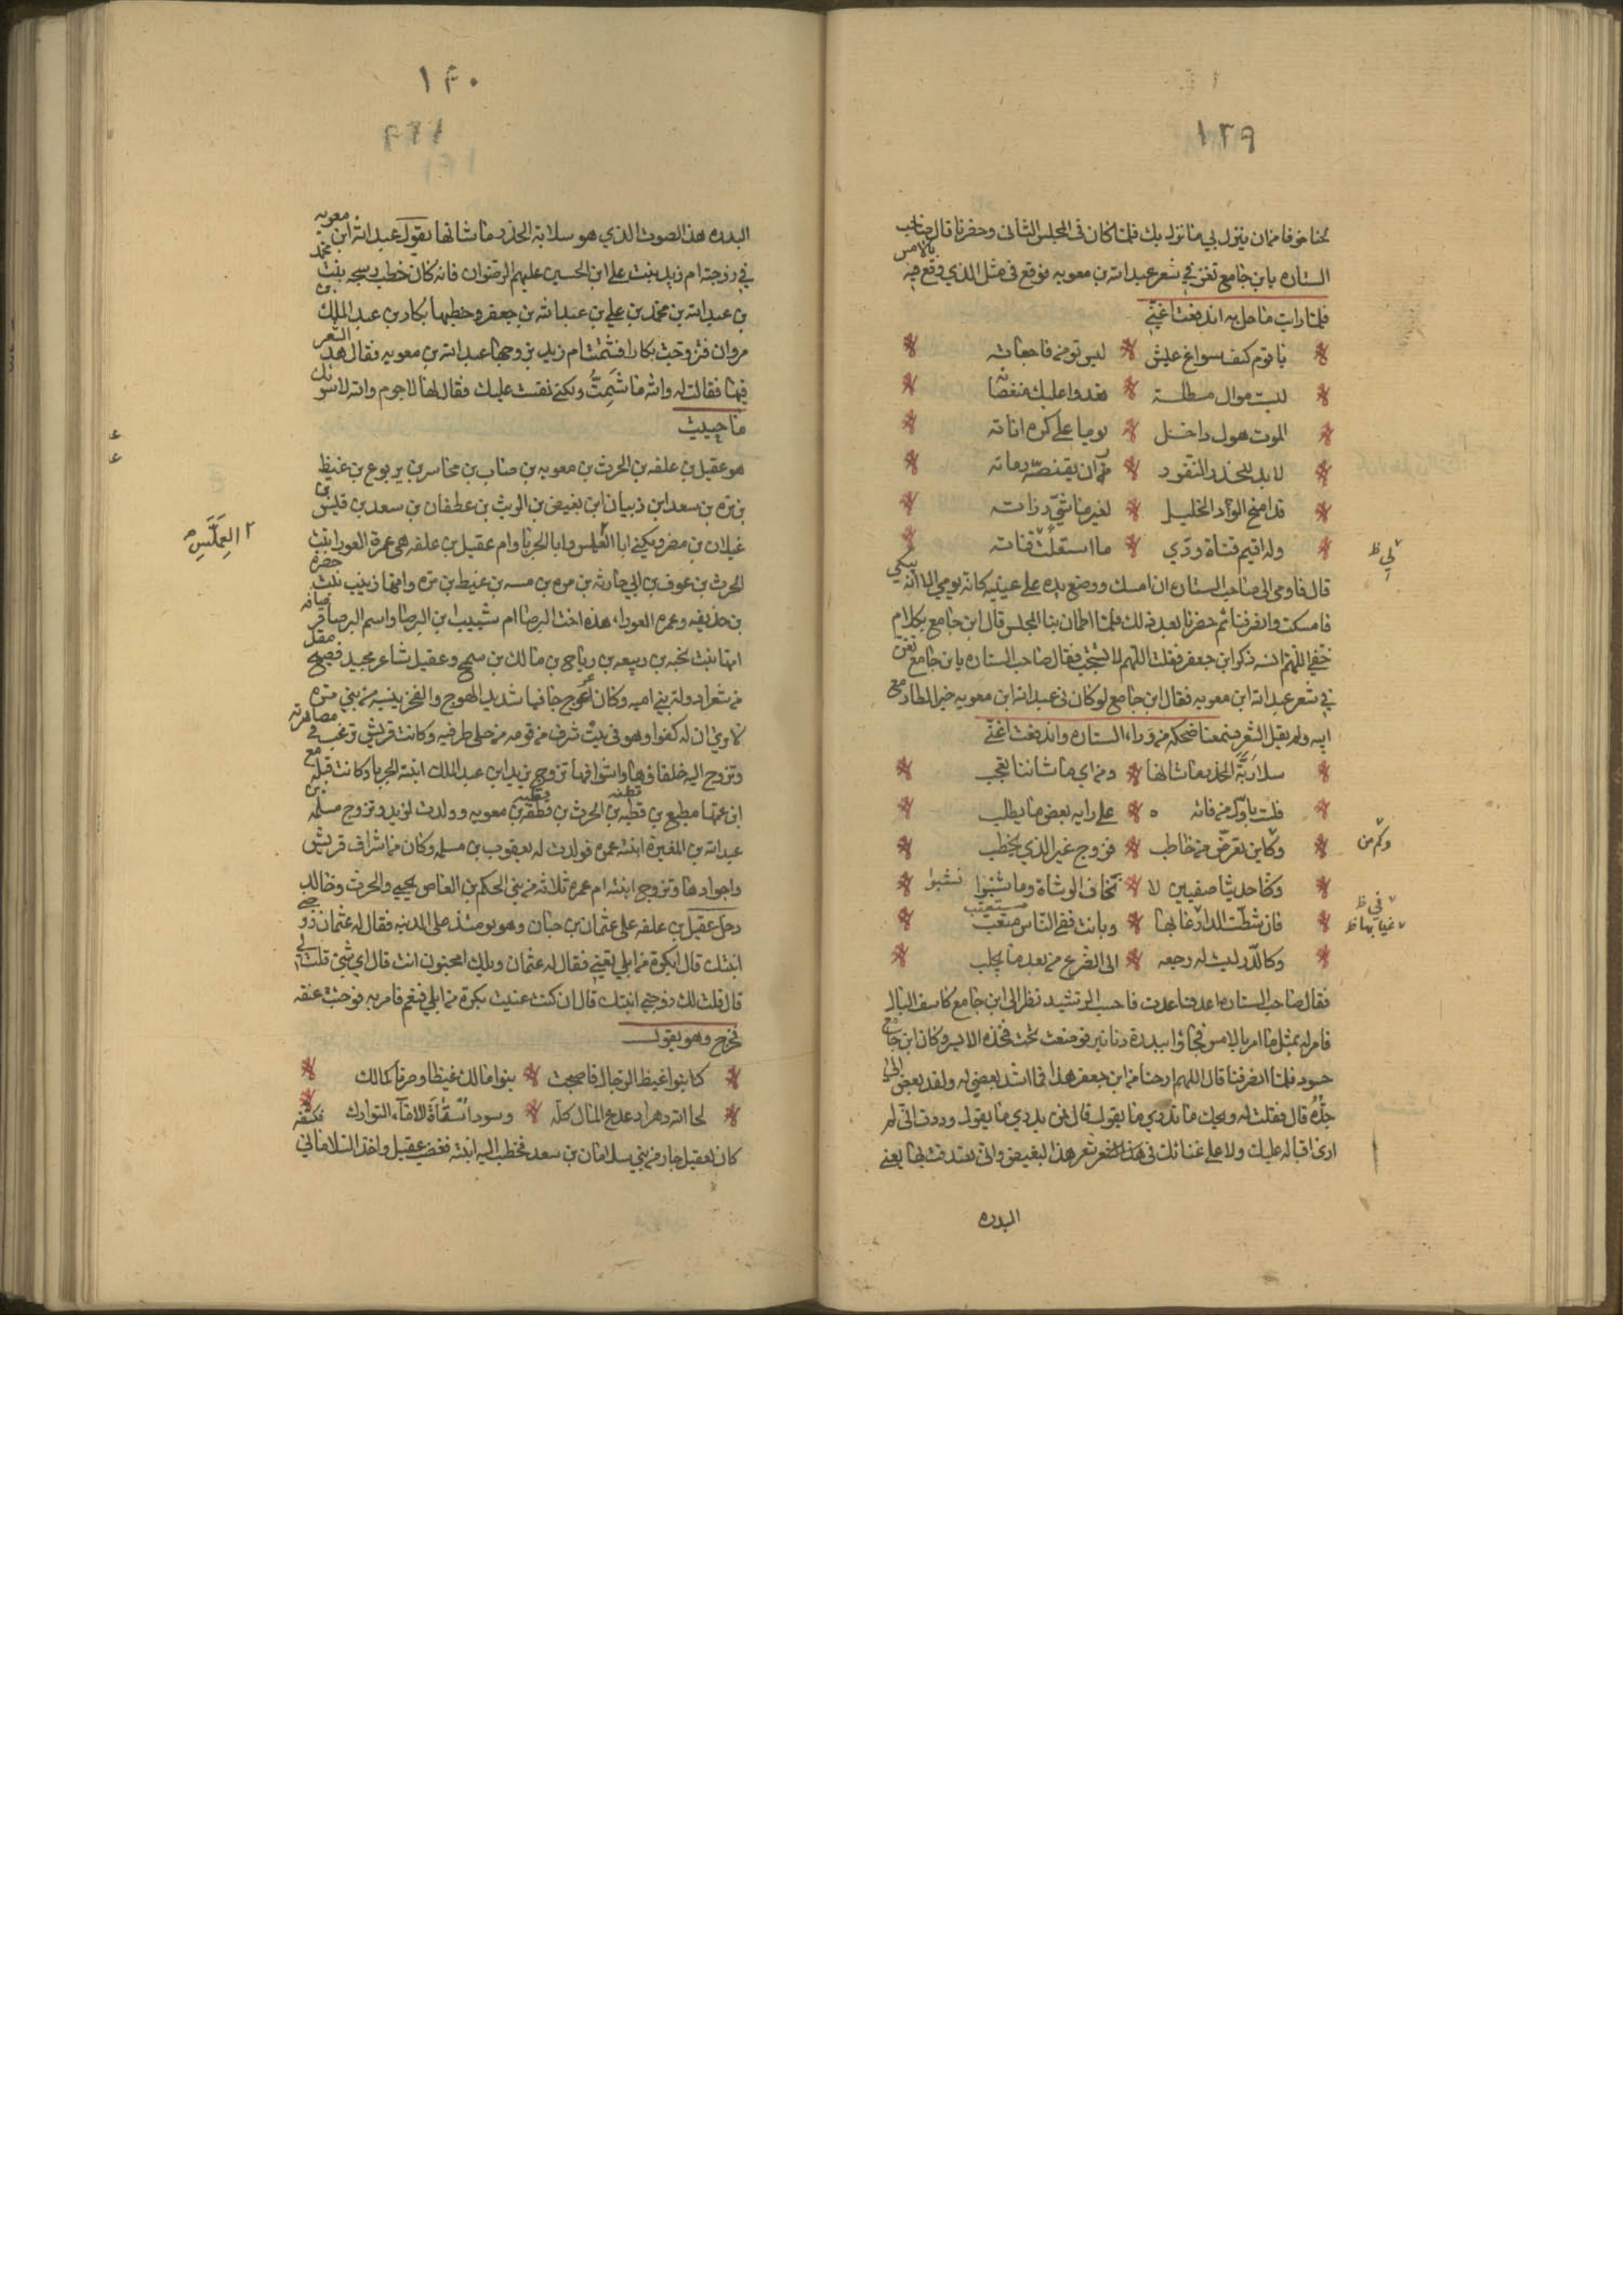 ١٣٩
لحنا خوفا من ان ينزل بي ما نزل بك فلما كان في المجلس الثاني وحضرنا قال صاحب
الستاره يا بن جامع تغن في شعر عبد الله بن معويه فوقع في مثل الذي وقع فيه بالامس
فلما رايت ما حل به اندفعت اغني
يا قوم كيف سواغ عيش ليس تومن فاجعاته
ليست موال مطلة تغدوا عليك منغصاته
الموت هول داخل يوما على كره اناته
لا بد للحذر النفور من ان يقنصه رماته
قد امنح الود الخليل لغير ما شئ رزاته
وله اقيم قناة ودي ما استقلت قناته
لي ظ
قال فاومى الى صاحب الستاره ان امسك ووضع يده على عينيه كانه يومي الى انه يبكي
فامسكت وانصرفنا ثم حضرنا بعد ذلك فلما اطمان بنا المجلس قال ابن جامع بكلام
خفي اللهم انسه ذكر ابن جعفر فقلت اللهم لا تستجب فقال صاحب الستاره يا بن جامع تغن
في شعر عبد الله ابن معويه فقال ابن جامع لو كان في عبد الله ابن معويه خير لطار مع
ابيه ولم يقبل الشعر فسمعنا ضحكه من وراء الستاره واندفعت اغني
سلا ربة الخدر ما شانها ومن اي ما شاننا تعجب
فلست باول من فاته على رايه بعض ما يطلب
وكاين تعرض من خاطب فزوج غير الذي يخطب
وكم من
وكنا حديثا صفيين لا نخاف الوشاة وما شنبوا نسبوا
فان شطت الدار عنا بها وبانت ففي الناس مستعتب
في ظ
عنا بها ظ
وكالدر ليست له رجعه الى الضرع من بعد ما يحلب
فقال صاحب الستاره اعد فاعدت فاحسب الرشيد نظر الى ابن جامع كاسف البال
فامر له بمثل ما امر بالامس فجاؤا ببدرة دنانير فوضعت تحت فخذه الايسر وكان ابن جامع
حسود فلما انصرفنا قال اللهم ارحنا من ابن جعفر هذا فما اشد بغضي له ولقد بغض الي
جده قال فقلت له ويحك ما تدري ما يقول قال فمن يدري ما يقول وددت اني لم
ارى اقباله عليك ولا على غنائك في هذا الشعر شعر هذا البغيض واني تصدقت بها يعني
البدره
١٤٠
البدره هذا الصوت الذي هو سلا ربة الخدر ما شانها يقوله عبد الله ابن معويه
في زوجته ام زيد بنت علي ابن الحسين عليهم الرضوان فانه كان خطب ربيحه بنت محمد
بن عبد الله بن محمد بن علي بن عبد الله بن جعفر وخطبها بكار بن عبد الملك بن
مروان فتزوجت بكارا فشمتت ام زيد بزوجها عبد الله بن معويه فقال هذا الشعر
فيها فقالت له والله ما شمت ولكني نقست عليك فقال لها لا جرم والله لا سؤتك
ما حييت
هو عقيل بن علفه بن الحرث بن معويه بن ضباب بن جابر بن يربوع بن غيظ
بن مره بن سعد ابن ذبيان ابن بغيض بن الريث بن غطفان بن سعد بن قيس بن
غيلان بن مضر ويكنى ابا العملس وابا الجربا وام عقيل بن علفه هي عمرة العورا بنت
العملس
الحرث بن عوف بن ابي حارثه بن مره بن نسبه بن غيظ بن مره وامها زينب بنت حضره
بن حذيفه وعمره العوراء هذه اخت البرصا ام شبيب ابن البرصا واسم البرصا قرصافه
امهما بنت نجبه بن ربيعه بن رياح بن مالك بن سمح وعقيل شاعر مجيد فصيح مقل
من شعرا دولة بني اميه وكان اعرج جافيا شديد الهوج والعجرفيه من بني مره
لا يرى ان له كفوا وهو في بيت شرف من قومه من كلى طرفيه وكانت قريش ترغب في مصاهرته
وتزوج اليه خلفاؤها واشرافها تزوج يزيد ابن عبد الملك ابنته الجربا وكانت قبله مع
ابن عمها مطيع بن قطبه بن الحرث بن قطبة بن معويه وولدت ليزيد وتزوج مسلمه بن
عبد الله بن المغيرة ابنته عمره فولدت له يعقوب بن مسلمه وكان من اشراف قريش
واجوادها وتزوج ابنته ام عمره ثلاثه من بني الحكم بن العاص يحيي والحرث وخالد
دخل عقيل بن علفه على عثمان بن حيان وهو يومئذ على المدينه فقال له عثمان زوجني
ابنتك قال ابكرة من ابلي تعني فقال له عثمان ويلك امجنون انت قال اي شئ قلت لي
قال قلت لك زوجني ابنتك قال ان كنت عنيت بكرة من ابلي فنعم فامر به فوجئت عنقه
فخرج وهو يقول
كنا بنوا غيظ الرجال فاصبحت بنوا مالك غيظا وصرنا كمالك
لحا الله دهرا دعدع المال كله وسود استاه الاماء الفوارك فكشفه
كان لعقيل جار من بني سلامان بن سعد فخطب اليه ابنته فغضب عقيل واخذ السلاماني